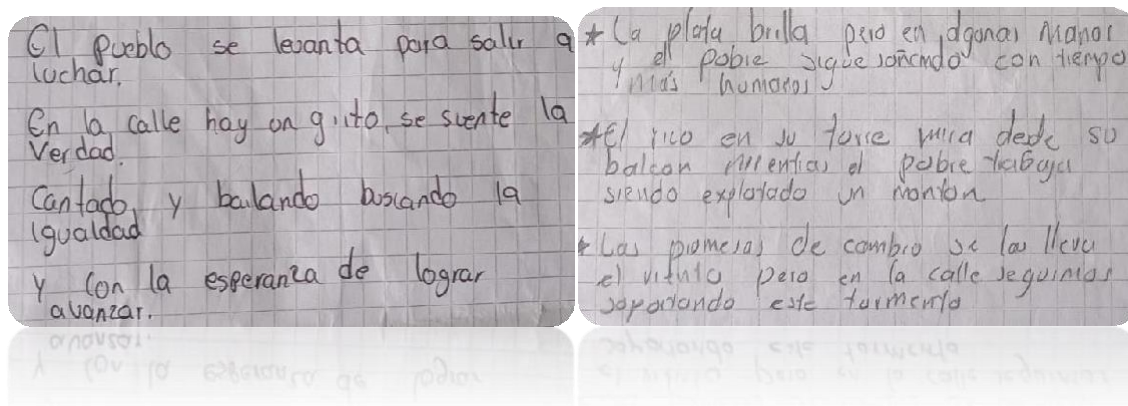 El pueblo se levanta para salir a
luchar.
En la calle hay un grito, se siente la
Verdad.
Cantado y bailando buscando la
igualdad
y con la esperanza de lograr
avanzar.
* La plata brilla pero en algunas manos
y el pobre sigue soñando con tiempo
y más humanos
* El rico en su torre mira dede su
balcon mientias el pobre trabaja
siendo explotado un monton
* Las promesas de cambio se las lleva
el viento pero en la calle seguimos
soportando este tormento